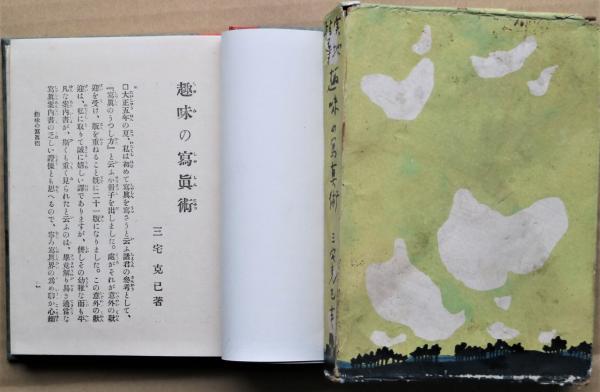 趣味の寫眞術
三宅克己著
□大正五年の夏、私は初めて寫眞を寫さうと云ふ諸君の參考として、
『寫眞のうつし方』と云ふ小册子を出しました。處がそれが意外の歡
迎を受け、版を重ねること既に二十一版になりました。この意外の歡
迎は、私に取りて誠に嬉しい譯でありますが、併しその幼稚な而も平
凡な案内書が、斯くも重く見られたと云ふのは、畢竟解り易き適當な
寫眞案内書の乏しい證據とも思へるので、寧ろ寫眞界の爲め聊か心細
趣味の寫眞術
一
趣味の寫真術
三宅克己著